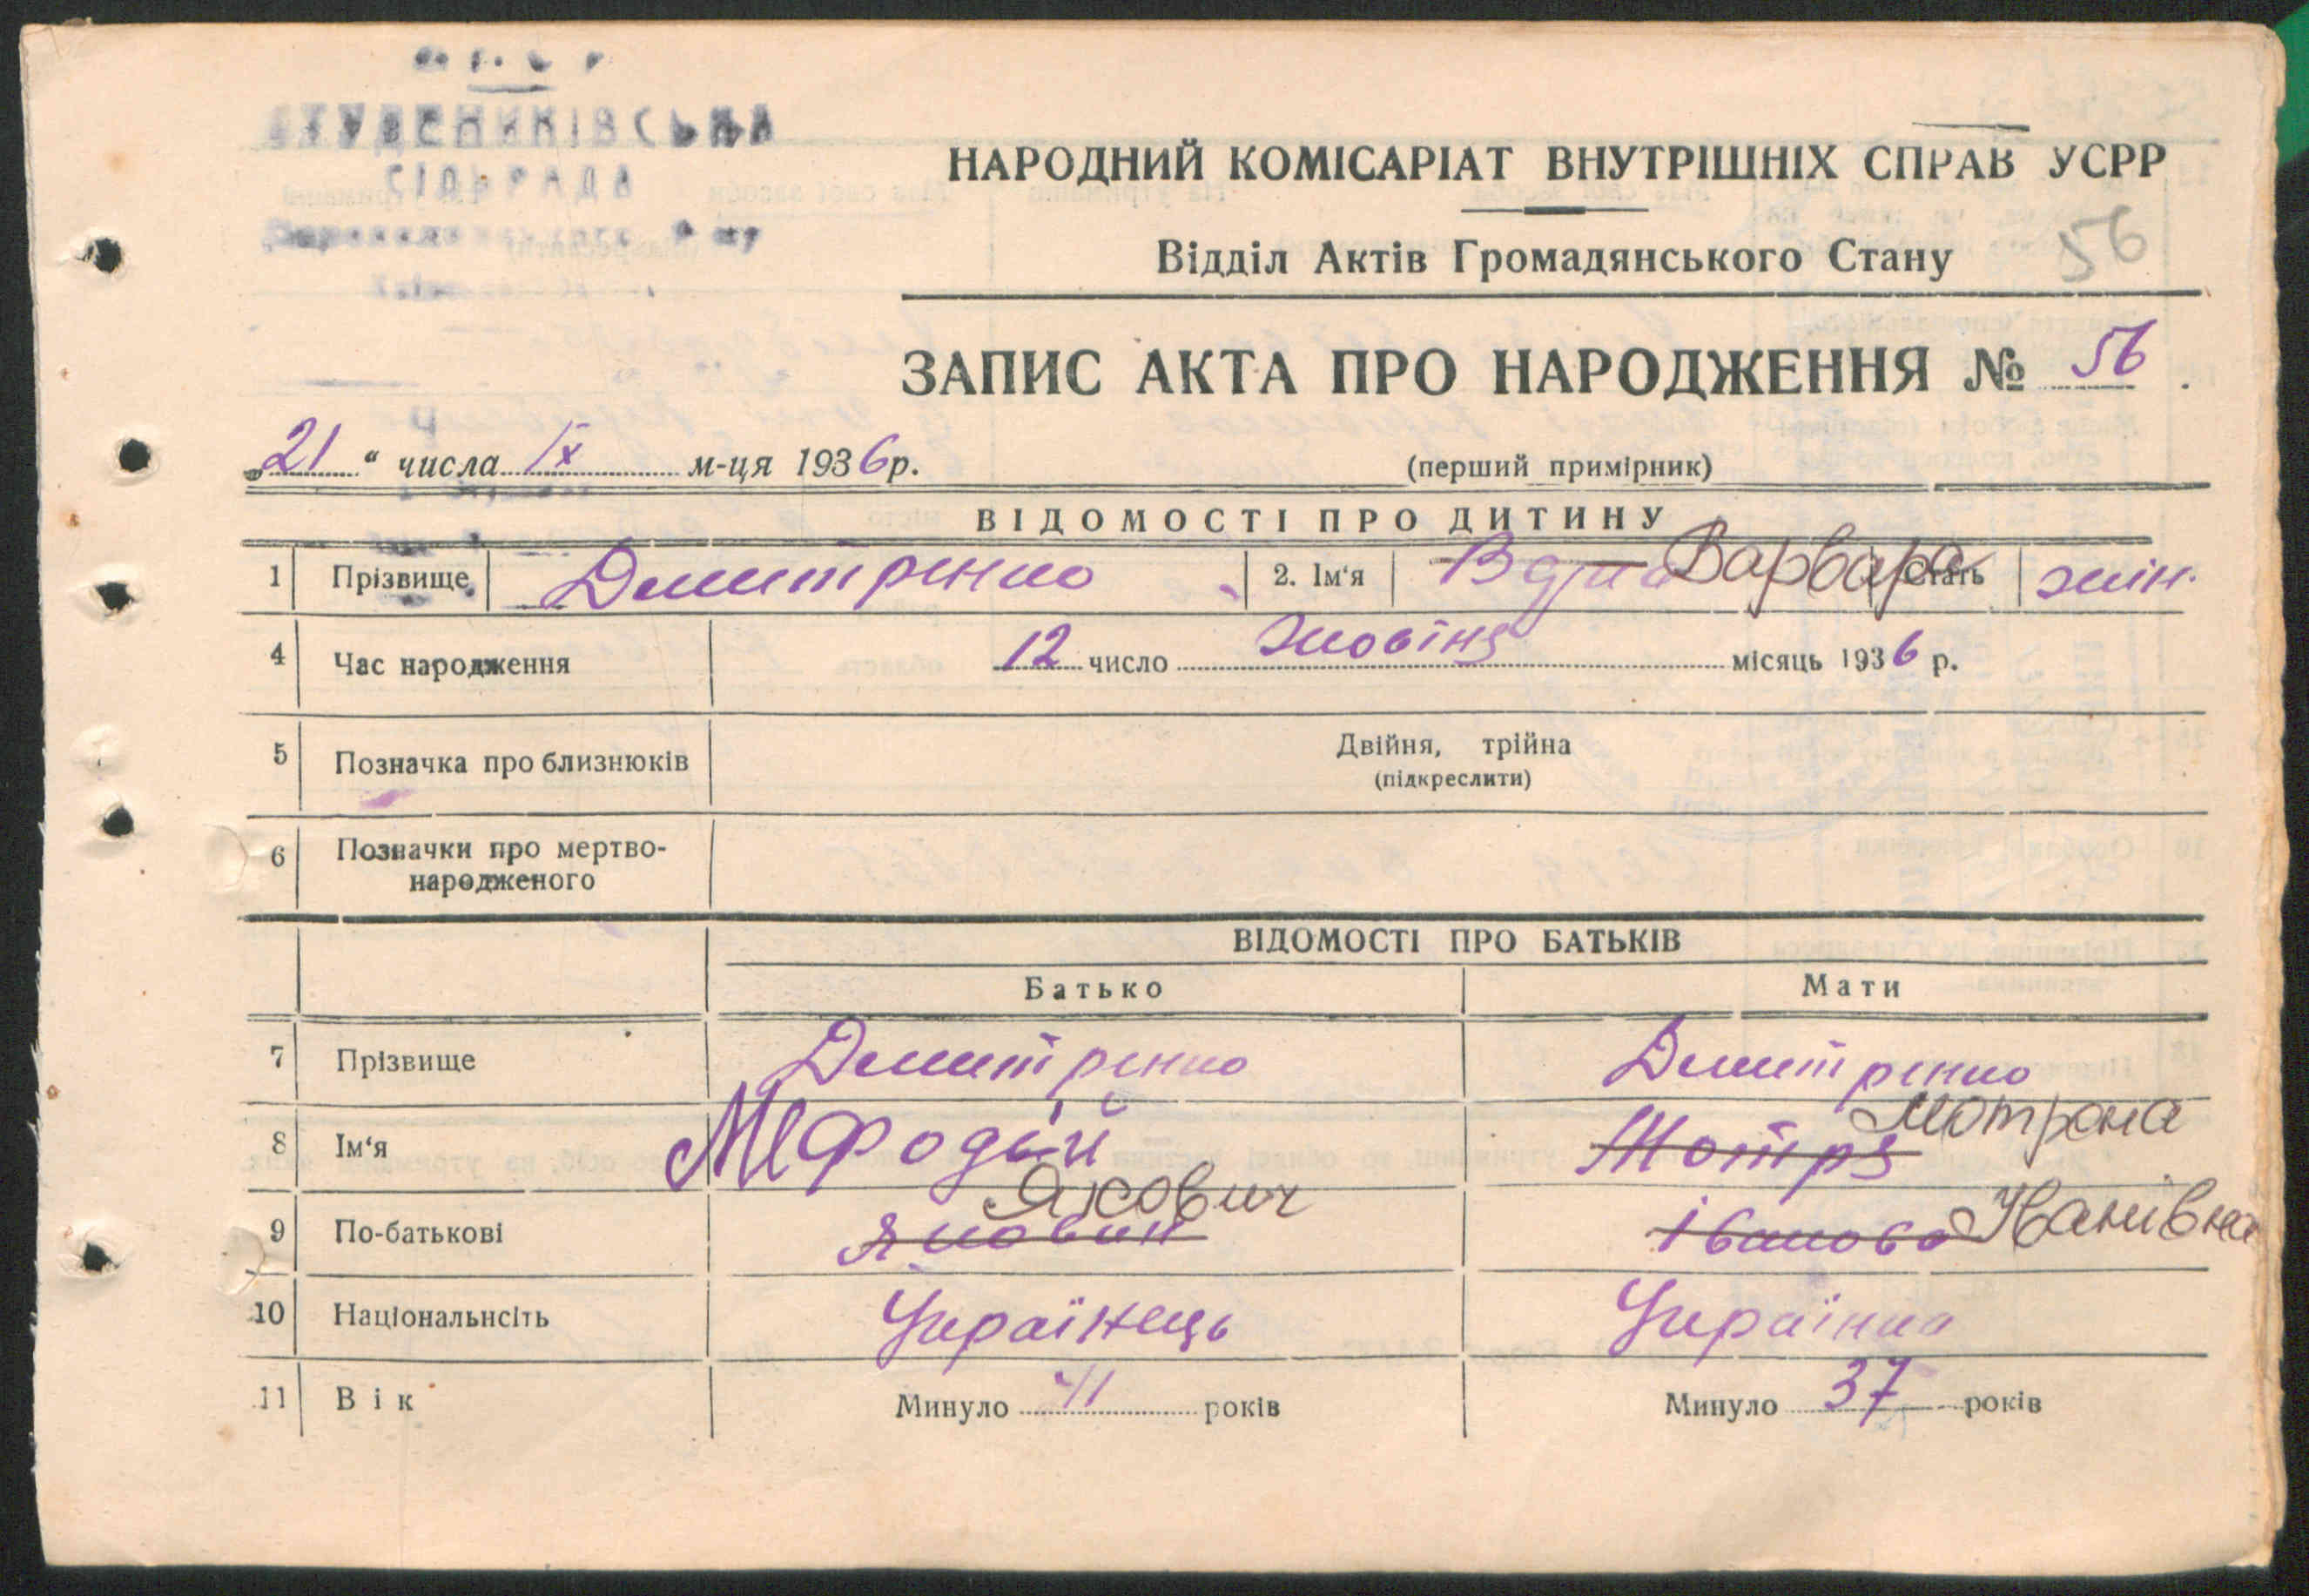 СТУДЕНИКІВСЬКА
СІЛЬРАДА
НАРОДНИЙ КОМІСАРІАТ ВНУТРІШНІХ СПРАВ УСРР
Відділ Актів Громадянського Стану
56
ЗАПИС АКТА ПРО НАРОДЖЕННЯ № 56.
„21“ числа IX м-ця 1936 р.
(перший примірник)
ВІДОМОСТІ ПРО ДИТИНУ
1 Прізвище Дмитренко 2. Ім'я Варвара Стать жін.
4 Час народження 12 число жовтня місяць 1936 р.
5 Позначка про близнюків Двійня, трійна
(підкреслити)
6 Позначки про мертво-
народженого
ВІДОМОСТІ ПРО БАТЬКІВ
Батько Мати
7 Прізвище Дмитренко Дмитренко
8 Ім'я Мефодий Мотря Мотрона
9 По-батькові Якович Іванівна
10 Національнсіть Українець Українка
11 Вік Минуло 41 років Минуло 37 років